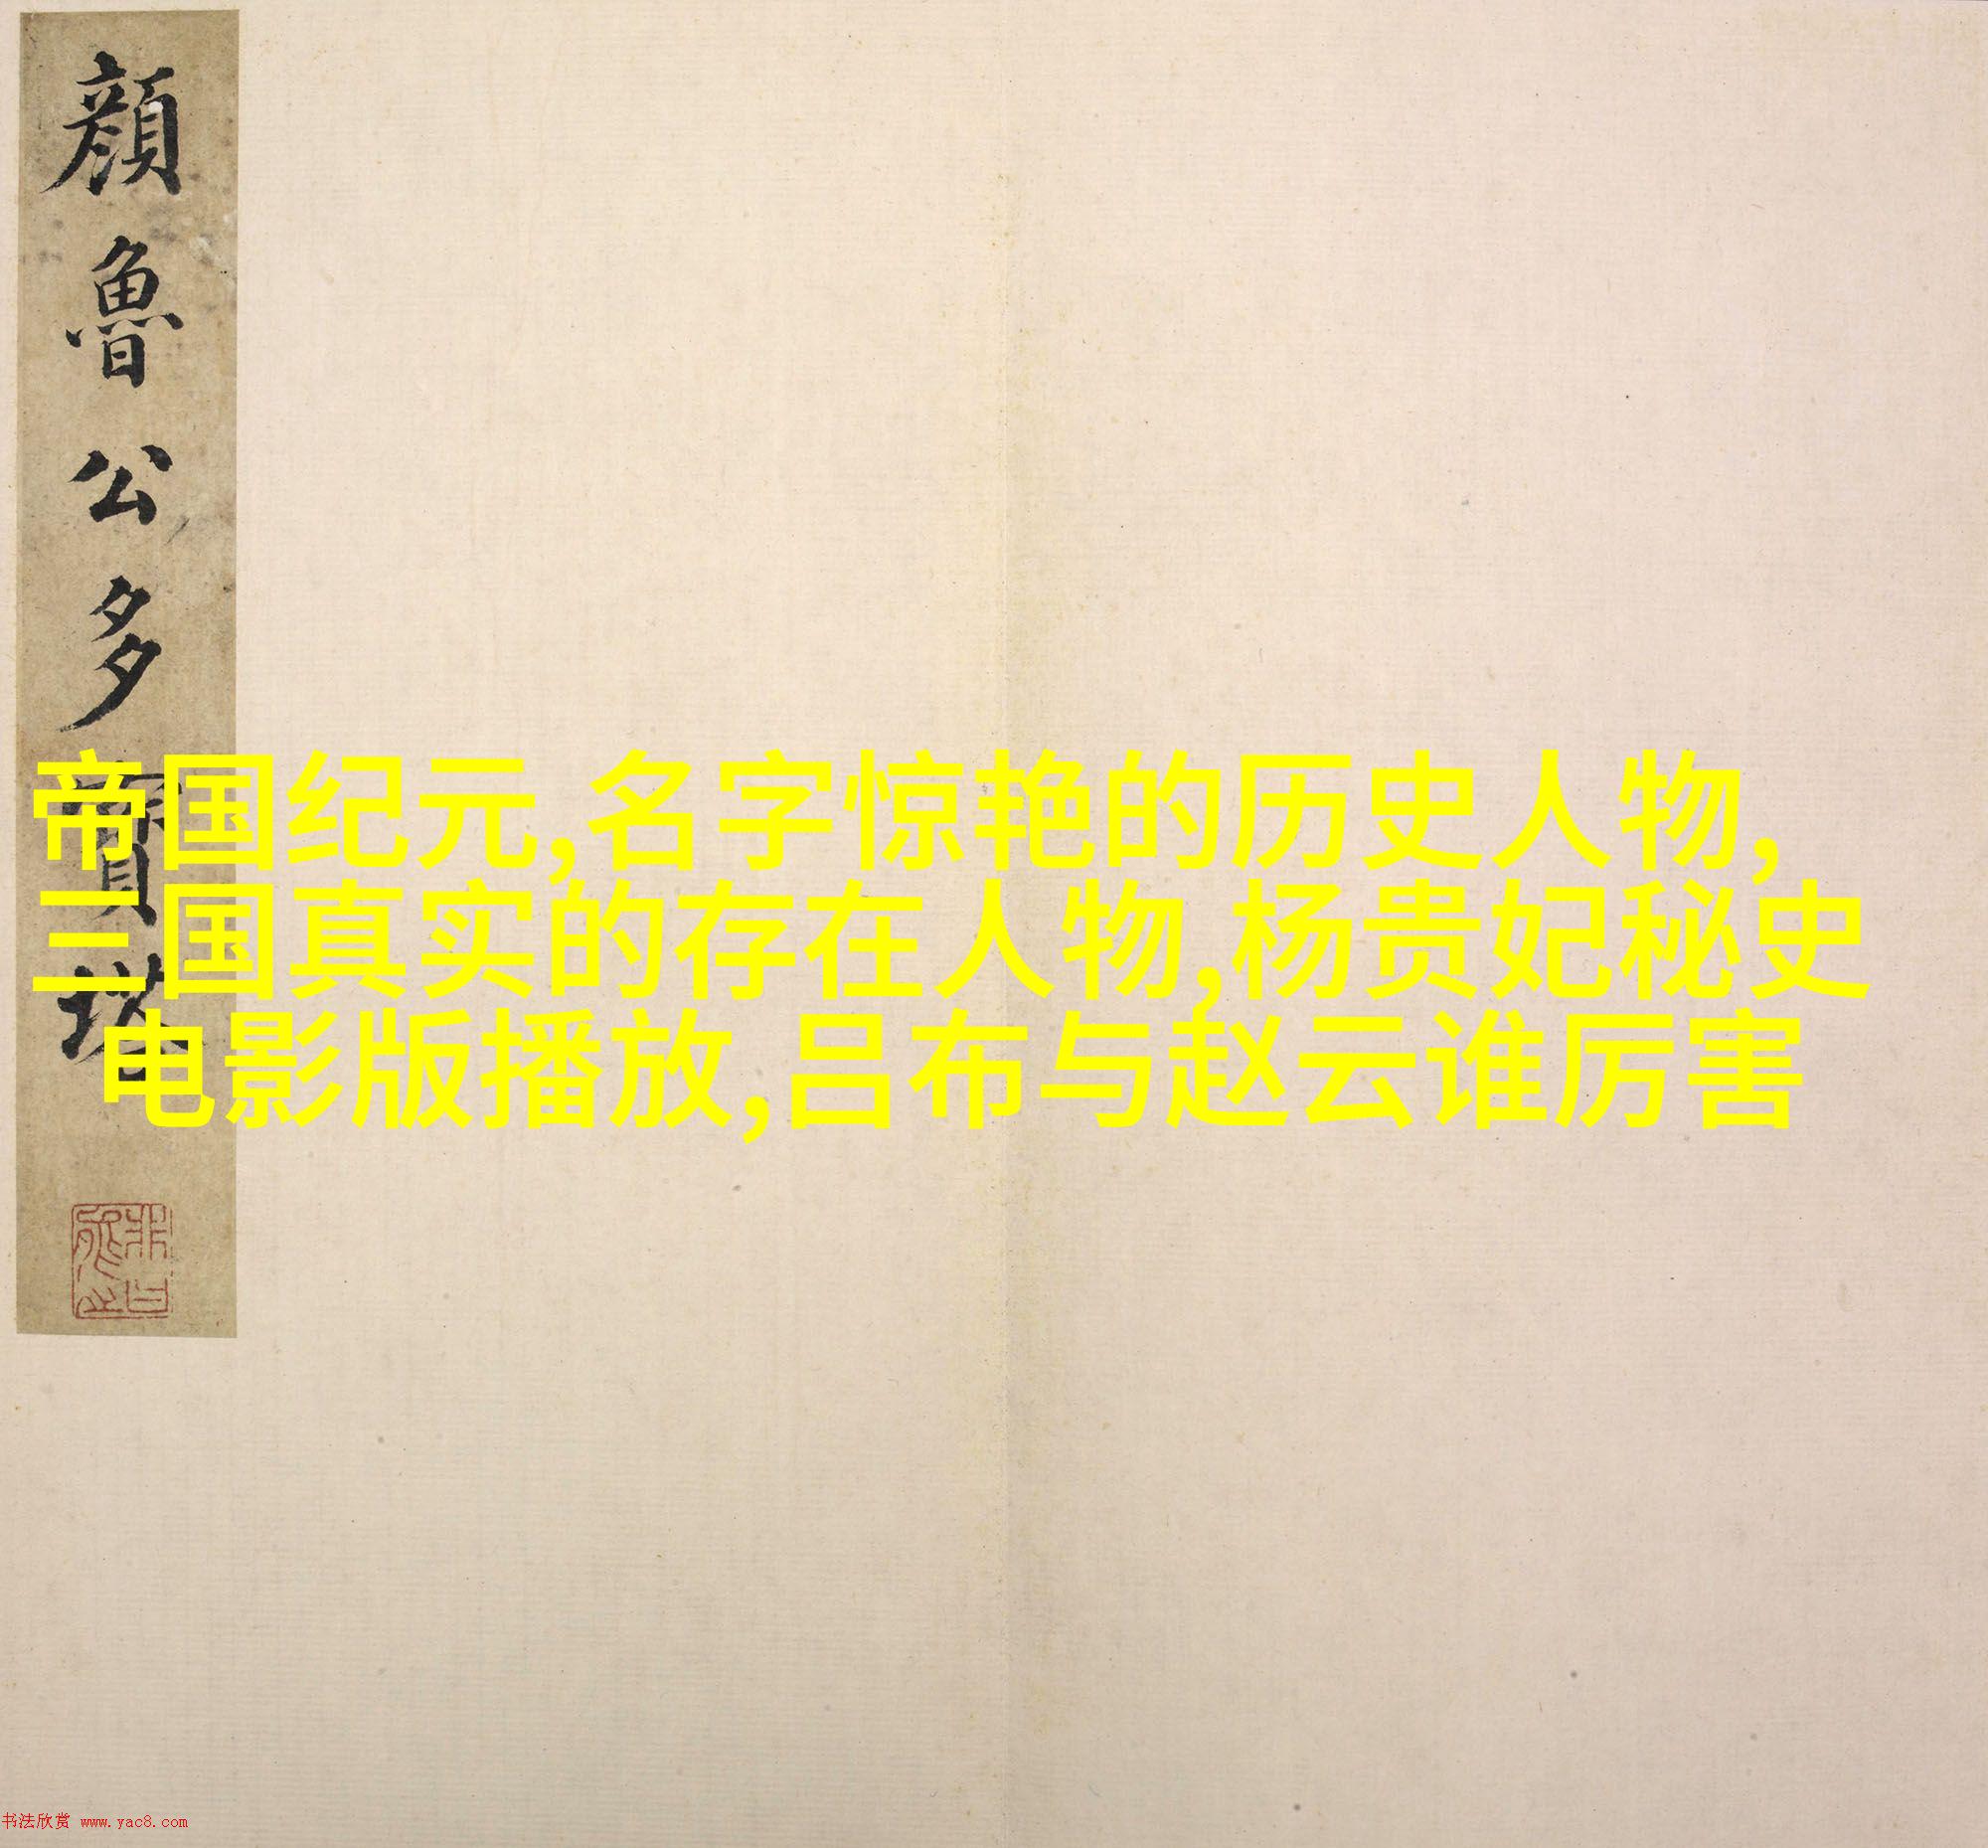 顏魯公多寶塔
帝国纪元,名字惊艳的历史人物,
三国真实的存在人物,杨贵妃秘史
电影版播放,吕布与赵云谁厉害
书法欣赏 www.yac8.com